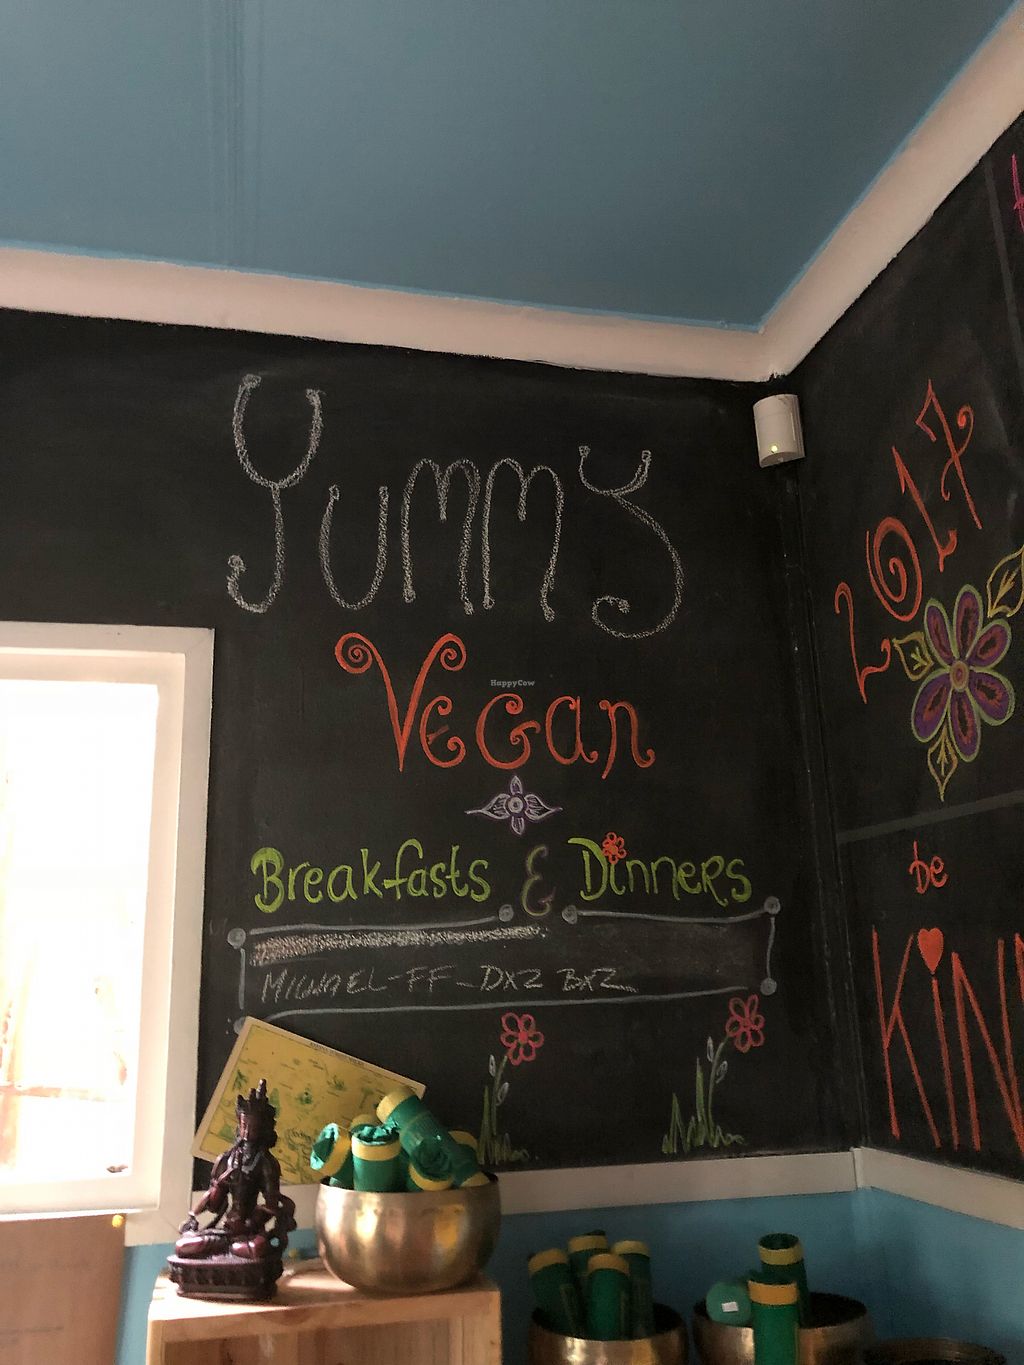 Yummy
Vegan
HappyCow
Breakfasts & Dinners
MICHAEL-FF-DXZ BXZ
2017
be
KIN